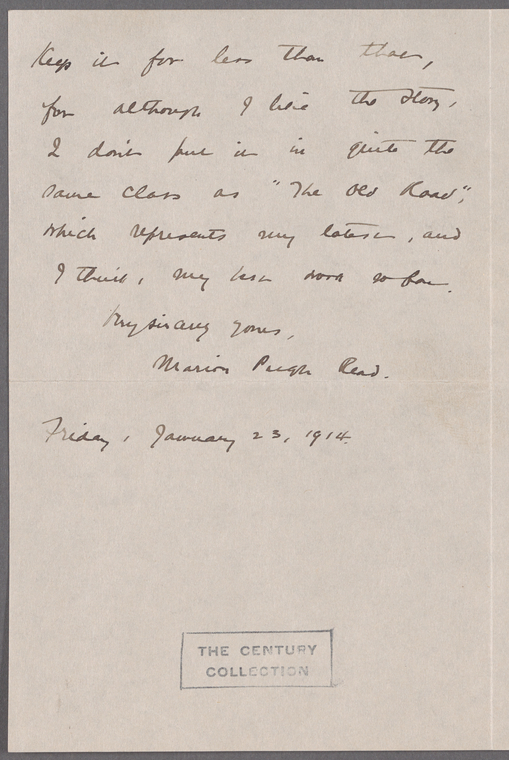 Keep it for less than that,
for although I like the story,
I don't put it in quite the
same class as "The Old Road",
which represents my latest, and
I think, my best work so far.
Very sincerely yours,
Marion Pugh Read.
Friday, January 23, 1914.
THE CENTURY
COLLECTION